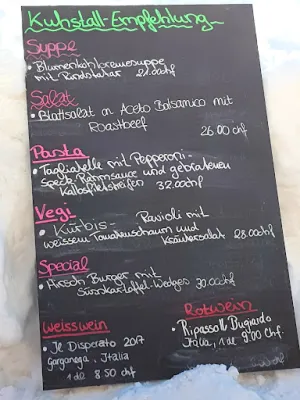 Kuhstall-Empfehlung
Suppe
• Blumenkohlcremesuppe
mit Rindstatar 21.00chf
Salat
• Blattsalat an Aceto Balsamico mit
Roastbeef
26.00 chf
Pasta
• Tagliatelle mit Pepperoni-
Speck Rahmsauce und gebratenen
Kalbsfiletstreifen 32.00chf
Vegi
• Kürbis- Ravioli mit
weissem Tomatenschaum und
Kräutersalat 28.00chf
Special
• Hirsch Burger mit
Süsskartoffel-Wedges 30.00chf
Weisswein
• Il Disperato 2017
Garganega, Italia
1 dl 8.50 chf
Rotwein
• Ripasso Bugiardo
Italia, 1 dl 9.00 chf.